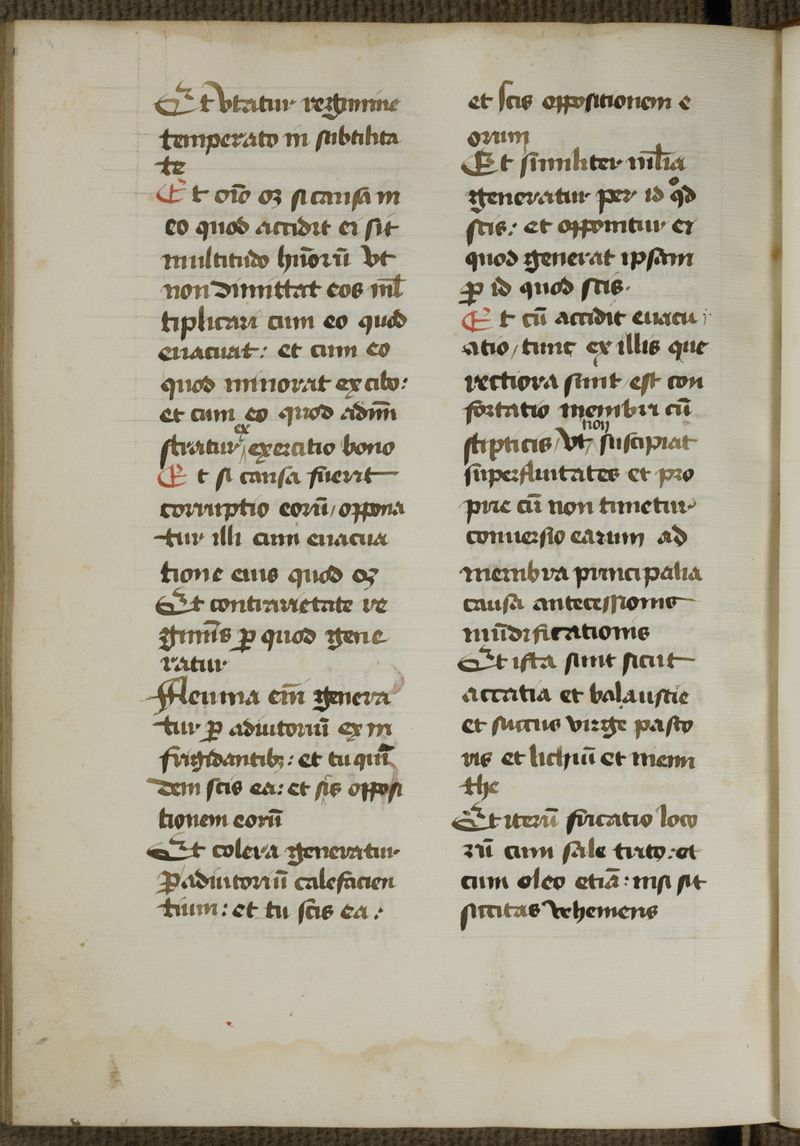 Et Vtatur regimine
temperato in subtilita
te
Et oīo oꝫ si causa in
eo quod accidit ei sit
multitudo hūorū Vt
non dimittat eos ml̄
tiplicari cum eo quod
euacuat: et cum eo
quod minorat ex cibo:
et cum eo quod admī
ex
stratur, exercitio bono
Et si causa fuerit
corruptio eorū, oppona
tur illi cum euacua
tione eius quod oꝫ
Et contrarietate re
giminis ꝓ quod gene
ratur
Fleuma em̄ genera
tur ꝑ adiutoriū ex in
frigidantibꝫ: et tu quī
dem scis ea: et sis opposi
tionem eorū
Et colera generatur
ꝑ adiutoriū calefacien
tium: et tu scis ea:
et scis oppositionem e
orum
Et similiter mł̄ia
generatur per id qͦd
scis: et opponitur ei
quod generat ipsam
ꝑ id quod scis.
Et cū accidit euacu
atio, tunc ex illis que
rectiora sunt est con
fortatio membri cū
non
stipticis, Vt, suscipiat
superfluitates et pro
prie cū non timetur
conuersio earum ad
membra principalia
causa antecessionis
mūdificationis
Et ista sunt sicut
accatia et balaustie
et succus virge pasto
ris et lichiū et menn
the
Et iterū fricatio loco
rū cum sale trito: et
cum oleo etiā: nisi sit
siccitas Vehemens